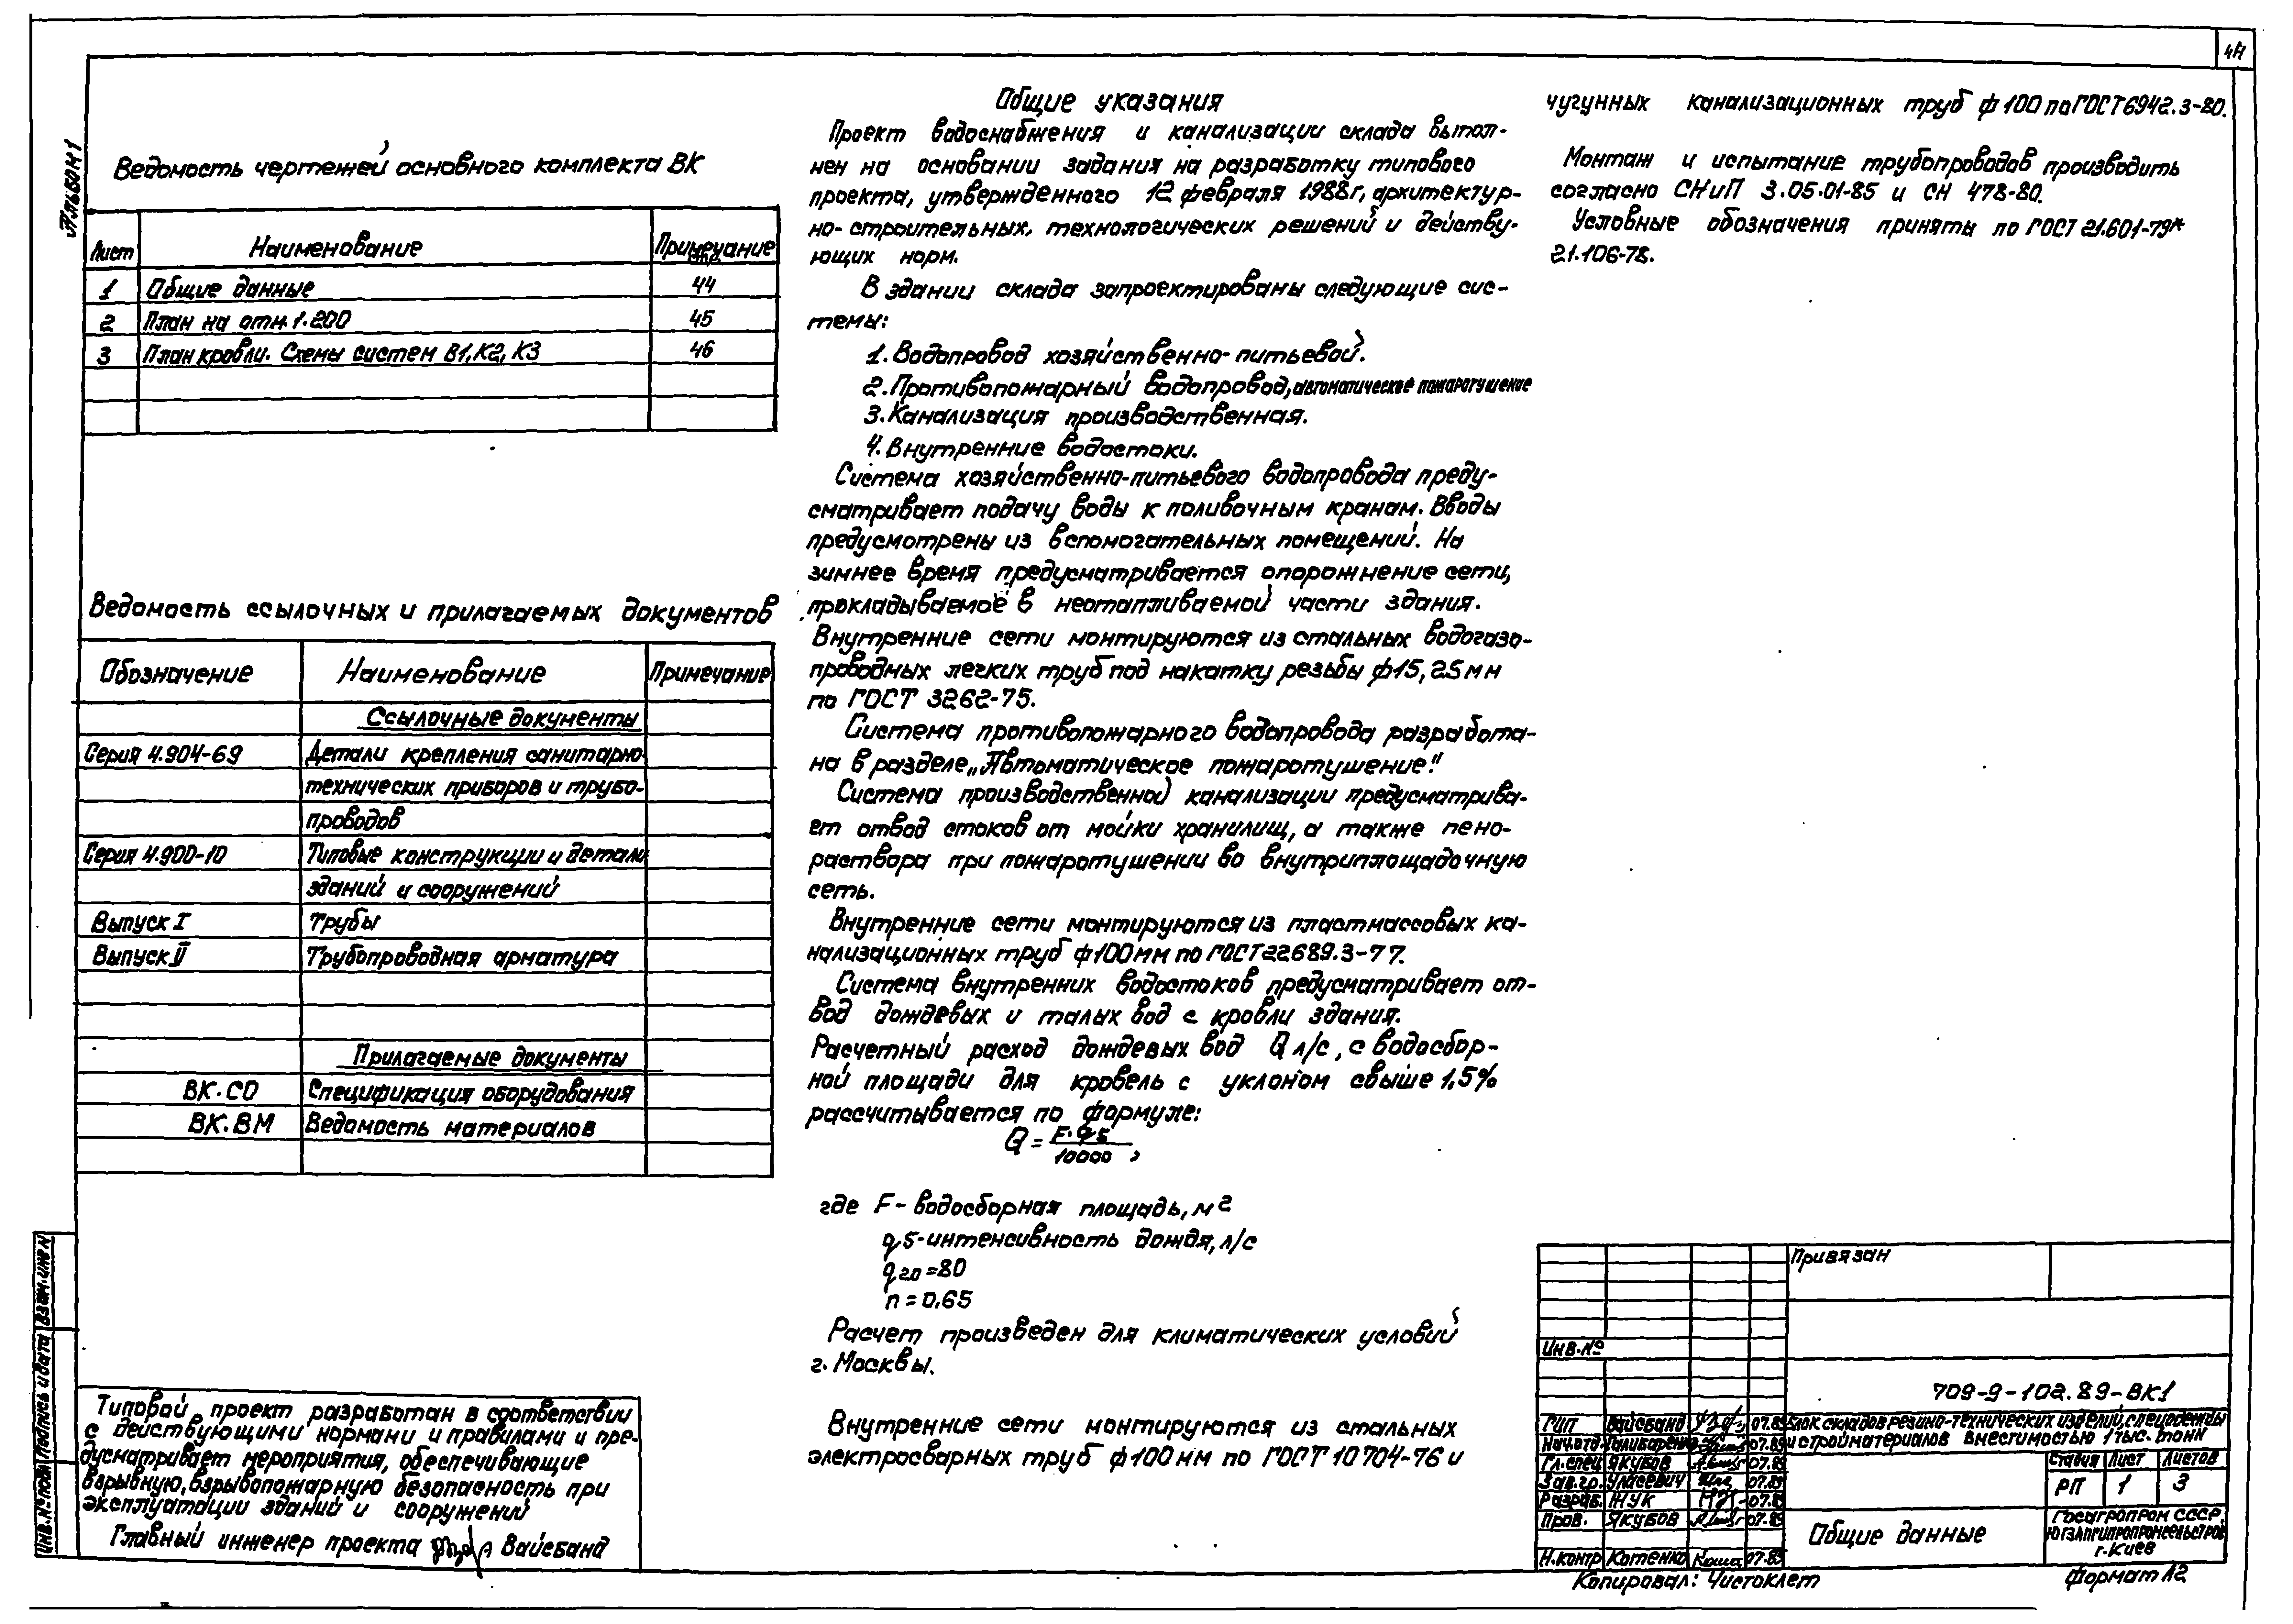 44
Альбом 1
Ведомость чертежей основного комплекта ВК
Лист Наименование Примечание
стр.
1 Общие данные 44
2 План на отм. 1.200 45
3 План кровли. Схемы систем В1, К2, К3 46
Ведомость ссылочных и прилагаемых документов
Обозначение Наименование Примечание
Ссылочные документы
Серия 4.904-69 Детали крепления санитарно-
технических приборов и трубо-
проводов
Серия 4.900-10 Типовые конструкции и детали
зданий и сооружений
Выпуск I Трубы
Выпуск II Трубопроводная арматура
Прилагаемые документы
ВК.СО Спецификация оборудования
ВК.ВМ Ведомость материалов
Типовой проект разработан в соответствии
с действующими нормами и правилами и пре-
дусматривает мероприятия, обеспечивающие
взрывную, взрывопожарную безопасность при
эксплуатации зданий и сооружений
Главный инженер проекта Вайсбанд
Общие указания
Проект водоснабжения и канализации склада выпол-
нен на основании задания на разработку типового
проекта, утвержденного 12 февраля 1988г, архитектур-
но-строительных, технологических решений и действу-
ющих норм.
В здании склада запроектированы следующие сис-
темы:
1. Водопровод хозяйственно-питьевой.
2. Противопожарный водопровод, автоматическое пожаротушение
3. Канализация производственная.
4. Внутренние водостоки.
Система хозяйственно-питьевого водопровода преду-
сматривает подачу воды к поливочным кранам. Вводы
предусмотрены из вспомогательных помещений. На
зимнее время предусматривается опорожнение сети,
прокладываемое в неотапливаемой части здания.
Внутренние сети монтируются из стальных водогазо-
проводных легких труб под накатку резьбы ф15, 25мм
по ГОСТ 3262-75.
Система противопожарного водопровода разработа-
на в разделе „Автоматическое пожаротушение".
Система производственной канализации предусматрива-
ет отвод стоков от мойки хранилищ, а также пено-
раствора при пожаротушении во внутриплощадочную
сеть.
Внутренние сети монтируются из пластмассовых ка-
нализационных труб ф100мм по ГОСТ 22689.3-77.
Система внутренних водостоков предусматривает от-
вод дождевых и талых вод с кровли здания.
Расчетный расход дождевых вод Q л/с, с водосбор-
ной площади для кровель с уклоном свыше 1,5%
рассчитывается по формуле:
Q = F·q5 / 10000 ,
где F - водосборная площадь, м2
q5 - интенсивность дождя, л/с
q20 = 80
n = 0,65
Расчет произведен для климатических условий
г. Москвы.
Внутренние сети монтируются из стальных
электросварных труб ф100мм по ГОСТ 10704-76 и
чугунных канализационных труб ф100 по ГОСТ 6942.3-80.
Монтаж и испытание трубопроводов производить
согласно СНиП 3.05.01-85 и СН 478-80.
Условные обозначения приняты по ГОСТ 21.601-79*
21.106-78.
Инв.№подл. Подпись и дата Взам.инв.№
Привязан
Инв.№
709-9-102.89-ВК1
ГИП Вайсбанд 07.89
Нач.отд. 07.89
Гл.спец. Якубов 07.89
Зав.гр. Уласевич 07.89
Разраб. Жук 07.89
Пров. Якубов 07.89
Н.контр. Котенко 07.89
Блок складов резино-технических изделий, спецодежды
и стройматериалов вместимостью 1 тыс. тонн
Стадия Лист Листов
РП 1 3
Общие данные
Госагропром СССР,
г. Киев
Копировал: Чистоклет
Формат А2